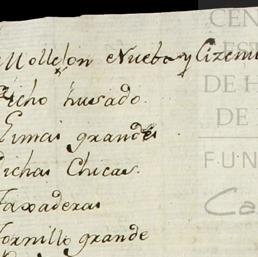 Mollejon Nueba y Cizem
Dicho husado.
Limas grandes
Dichas Chicas.
Taxaderas
Tornillo grande
CEN
ES
DE H
DE
FUN
Ca